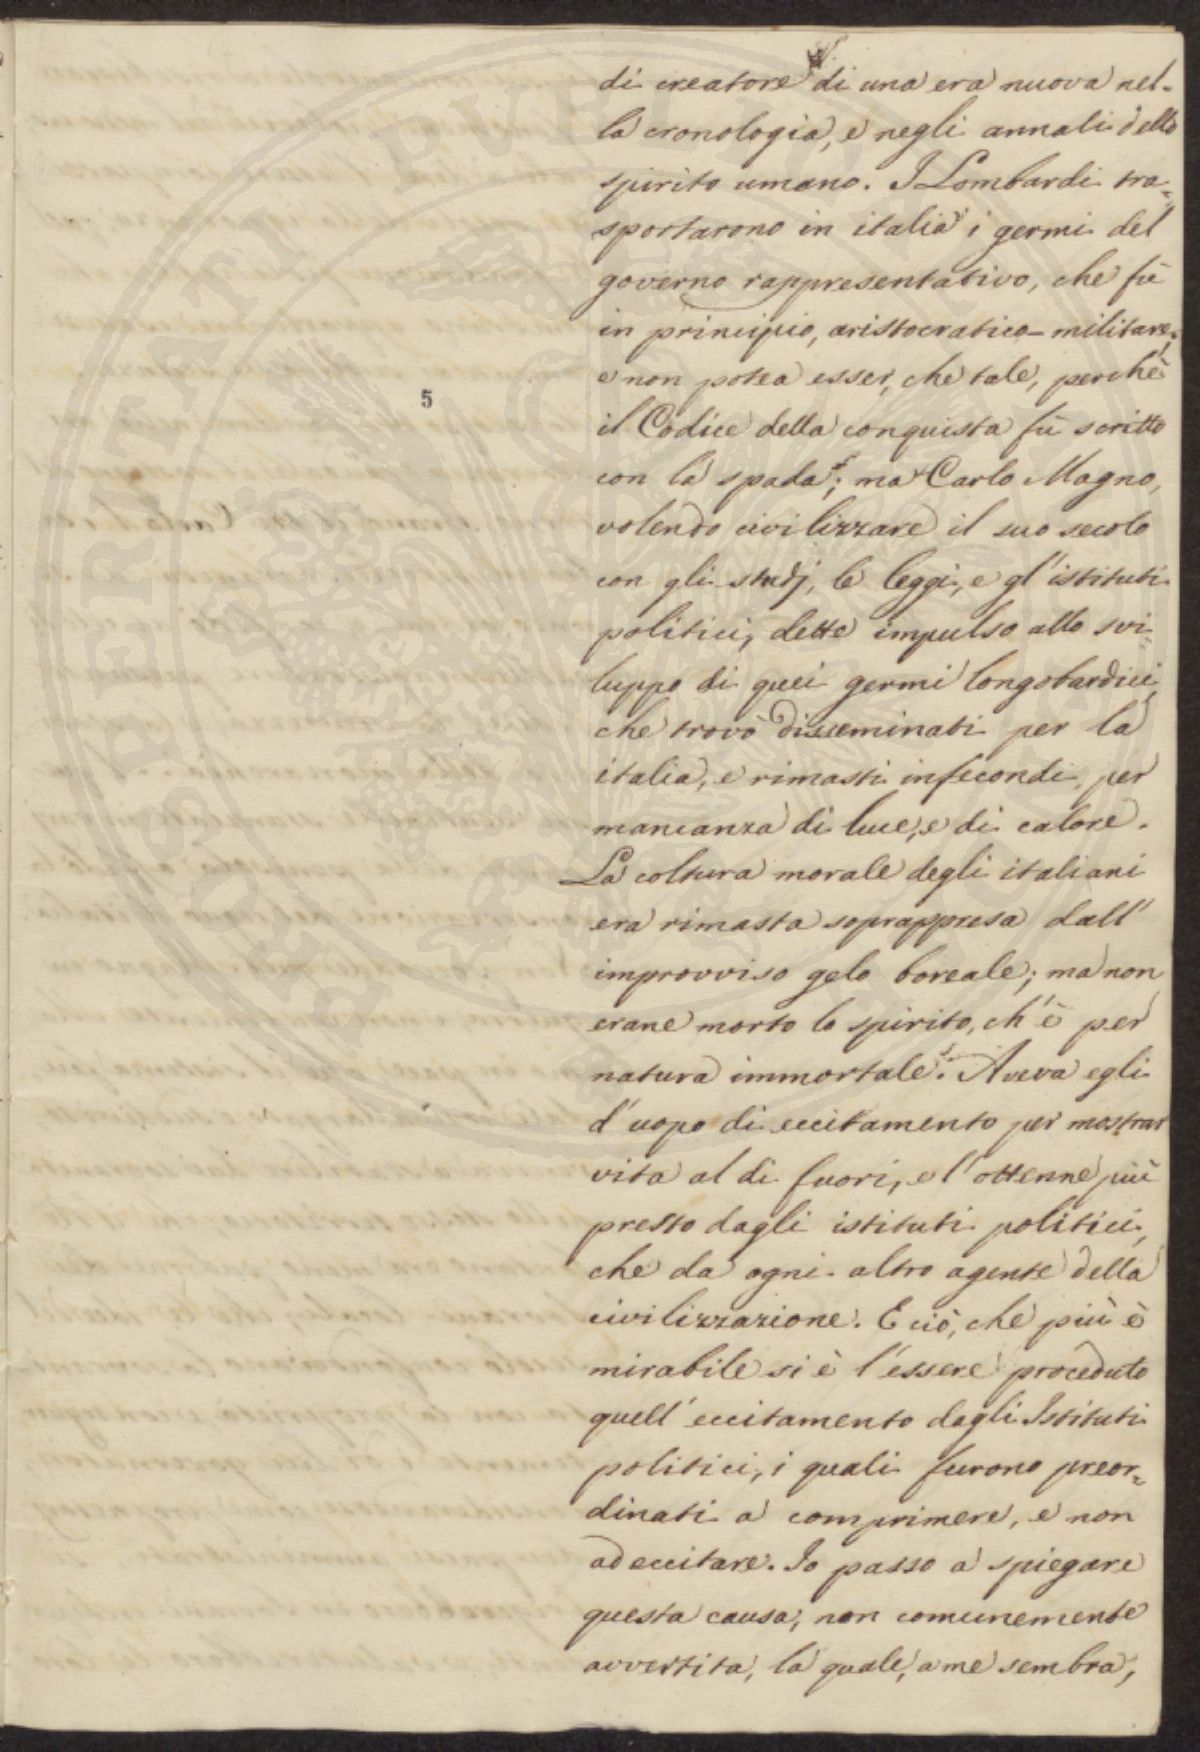 di creatore di una era nuova nel-
la cronologia, e negli annali dello
spirito umano. I Lombardi tra=
sportarono in italia i germi del
governo rappresentativo, che fù
in principio, aristocratico-militare,
e non potea esser, che tale, perchè
5
il Codice della conquista fù scritto
con la spada; ma Carlo Magno,
volendo civilizzare il suo secolo
con gli studj, le leggi, e gl'istituti
politici, dette impulso allo svi=
luppo di quei germi longobardici,
che trovò disseminati per la
italia, e rimasti infecondi, per
mancanza di luce, e di calore.
La coltura morale degli italiani
era rimasta soprappresa dall'
improvviso gelo boreale; ma non
erane morto lo spirito, ch'è per
natura immortale. Aveva egli
d'uopo di eccitamento per mostrar
vita al di fuori, e l'ottenne più
presto dagli istituti politici,
che da ogni altro agente della
civilizzazione. E ciò, che più è
mirabile si è l'essere proceduto
quell'eccitamento dagli Istituti
politici, i quali furono preor=
dinati a comprimere, e non
ad eccitare. Io passo a spiegare
questa causa, non comunemente
avvertita, la quale, a me sembra,